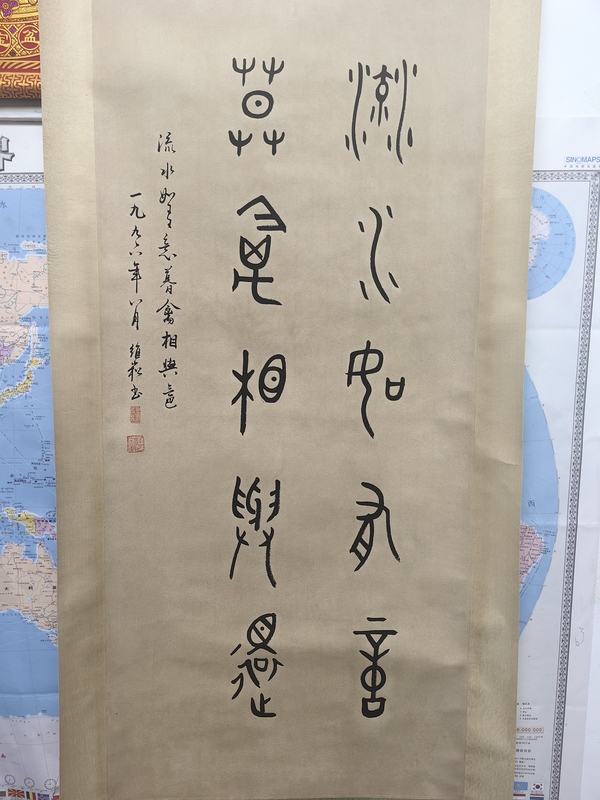 流水如有意
莫禽相與還
流水如有意暮禽相與還
一九九六年八月 維崧書
SINOMAPS
盆
西